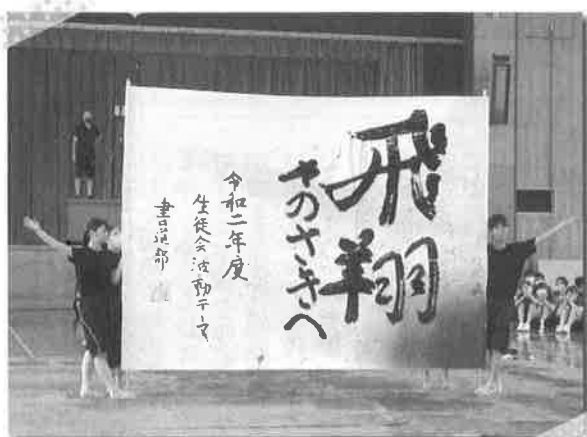 飛翔
そのさきへ
令和二年度
生徒会活動テーマ
書道部